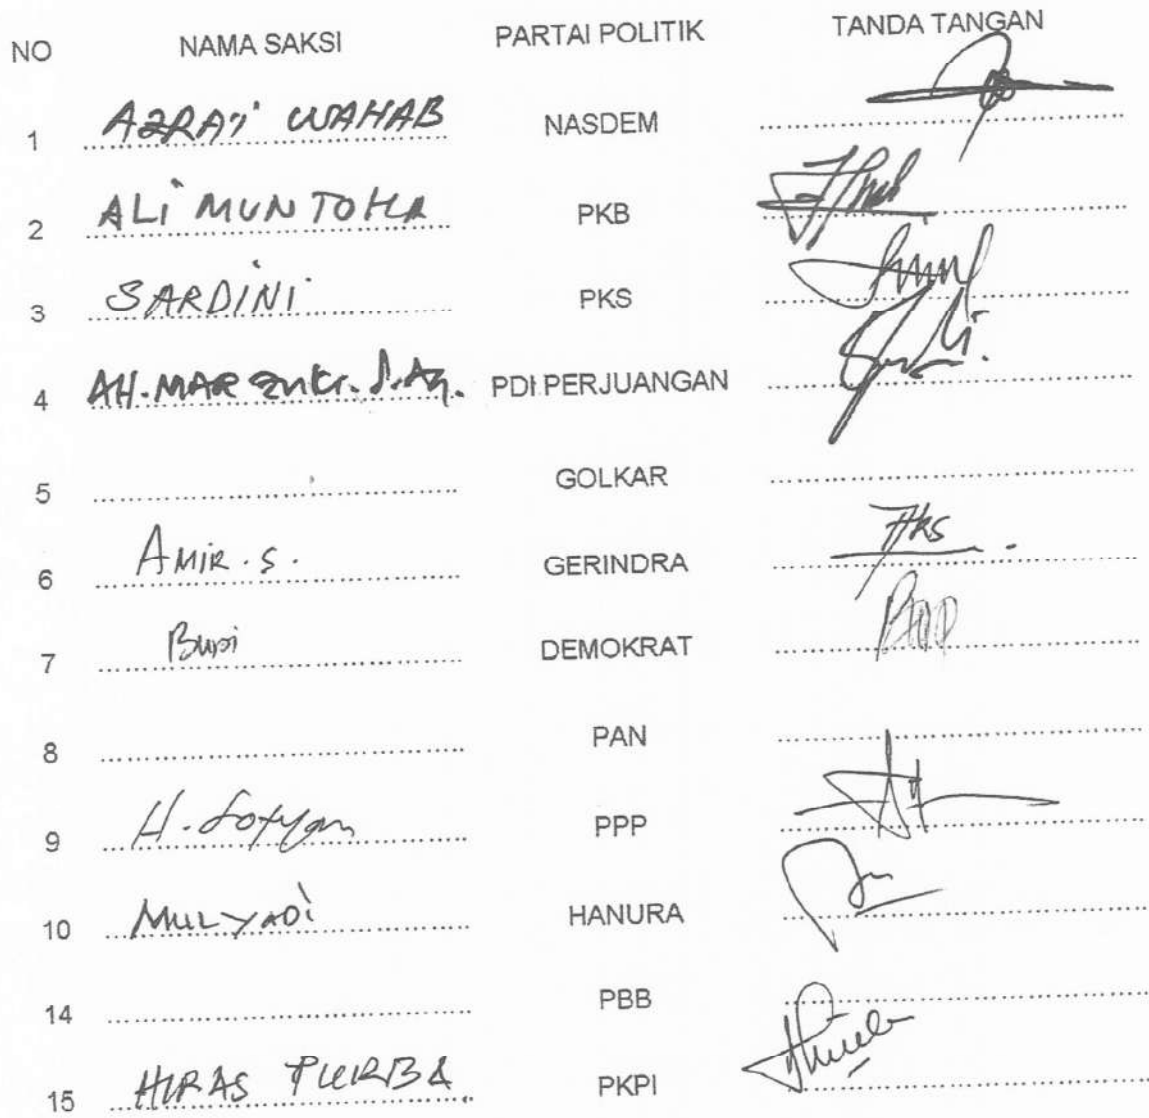 NO NAMA SAKSI PARTAI POLITIK TANDA TANGAN
1 AZRAI WAHAB NASDEM
2 ALI MUNTOHA PKB
3 SARDINI PKS
4 AH. MARZUKI. S.Ag. PDI PERJUANGAN
5 GOLKAR
6 AMIR. S. GERINDRA
7 BUDI DEMOKRAT
8 PAN
9 H. Sofyan PPP
10 MULYADI HANURA
14 PBB
15 HIRAS PURBA PKPI